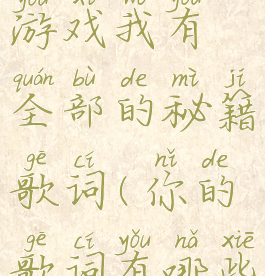 yóu xì wǒ yǒu
游戏我有
quán bù de mì jí
全部的秘籍
gē cí nǐ de
歌词(你的
gē cí yǒu nǎ xiē
歌词有哪些